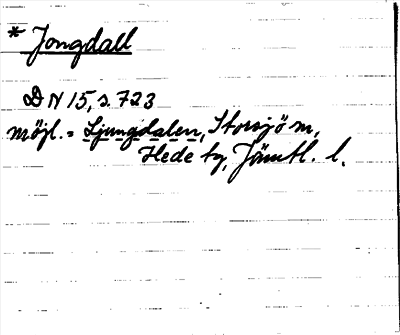 * Jongdall
DN 15, s. 723
möjl. = Ljungdalen, Storsjö sn,
Hede tg, Jämtl. l.